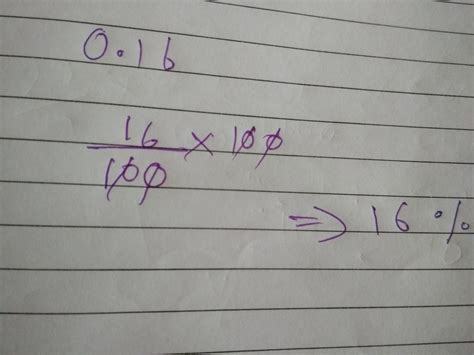 0.16
16/100 × 100
⇒ 16%